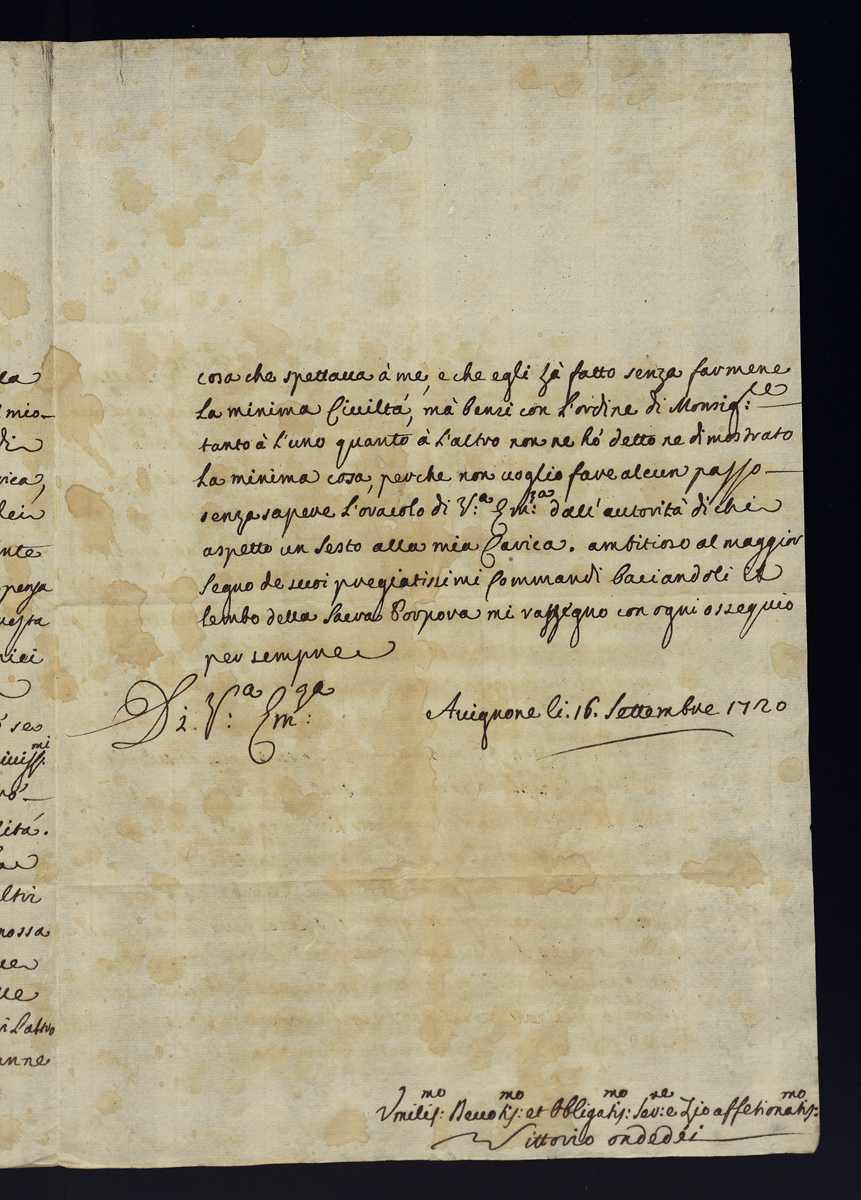 la
mio—
di
rica,
lei
ente
pensa
uesta
nici
se
iuiss:mi
rò—
lità.
ltri
mossa
ue
i L'altro
anne
cosa che spettaua à me, e che egli hà fatto senza farmene
La minima Ciuiltá, má bensi con L'ordine di Monsig:re—
tanto à L'uno quanto à L'altro non ne hó detto ne dimostrato
La minima cosa, perche non uoglio fare alcun passo—
senza sapere L'oracolo di V:a Em:za dall'autoritá di chi
aspetto un Sesto alla mia Carica. ambitioso al maggior
Segno de suoi pregiatissimi Commandi baciandoli il
lembo della Sacra Porpora mi rassegno con ogni ossequio
per sempre
Di V:a Em:za
Auignone li. 16. Settembre 1720
Vmilis:mo Deuotis:mo et Obligatis:mo Ser:re e Zio affetionatis:mo
Vittorio ondedei